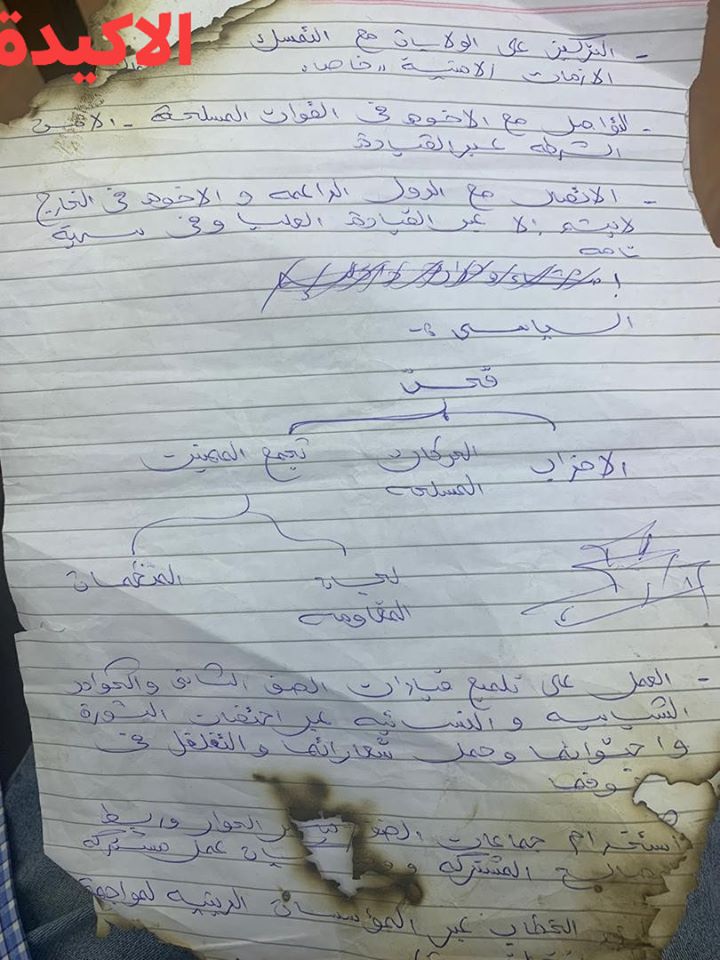 الاكيدة
- التركيز على الولايات مع التمسك
الازمات الامنية "خاصة"
- التواصل مع الاخوة في القوات المسلحة - الامن
الشرطة عبر القيادة
- الاتصال مع الدول الداعمة و الاخوة في الخارج
لا يتم إلا عبر القيادة العليا وفي سرية
تامة
السياسي :-
قحت
الاحزاب الحركات تجمع المهنيين
المسلحة
لجان المنظمات
المقاومة
- العمل على تلميع قيادات الصف الثاني والكوادر
الشبابية و النسائية عبر اختطاف الثورة
واحتوائها وحمل شعاراتها والتغلغل في
استخدام جماعات الضغط عبر الحوار وربط
المشتركة عمل مشتركة
الخطاب عبر المؤسسات الدينية لمواجهة